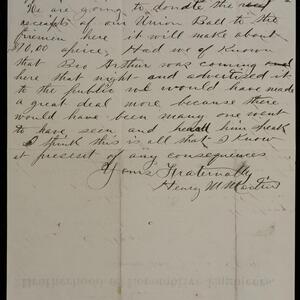 We are going to donate the
receipts of our Union Ball to the
firemen here it will make about
$10.00 apiece, Had we of Known
that Bro Arthur was coming
here that night and advertised it
to the public we would have made
a great deal more because there
would have been many one went
to have seen and heard him speak
I think this is all that I Know
at present of any consequences
Yours Fraternally
Henry M
Brotherhood of Locomotive Engineers.